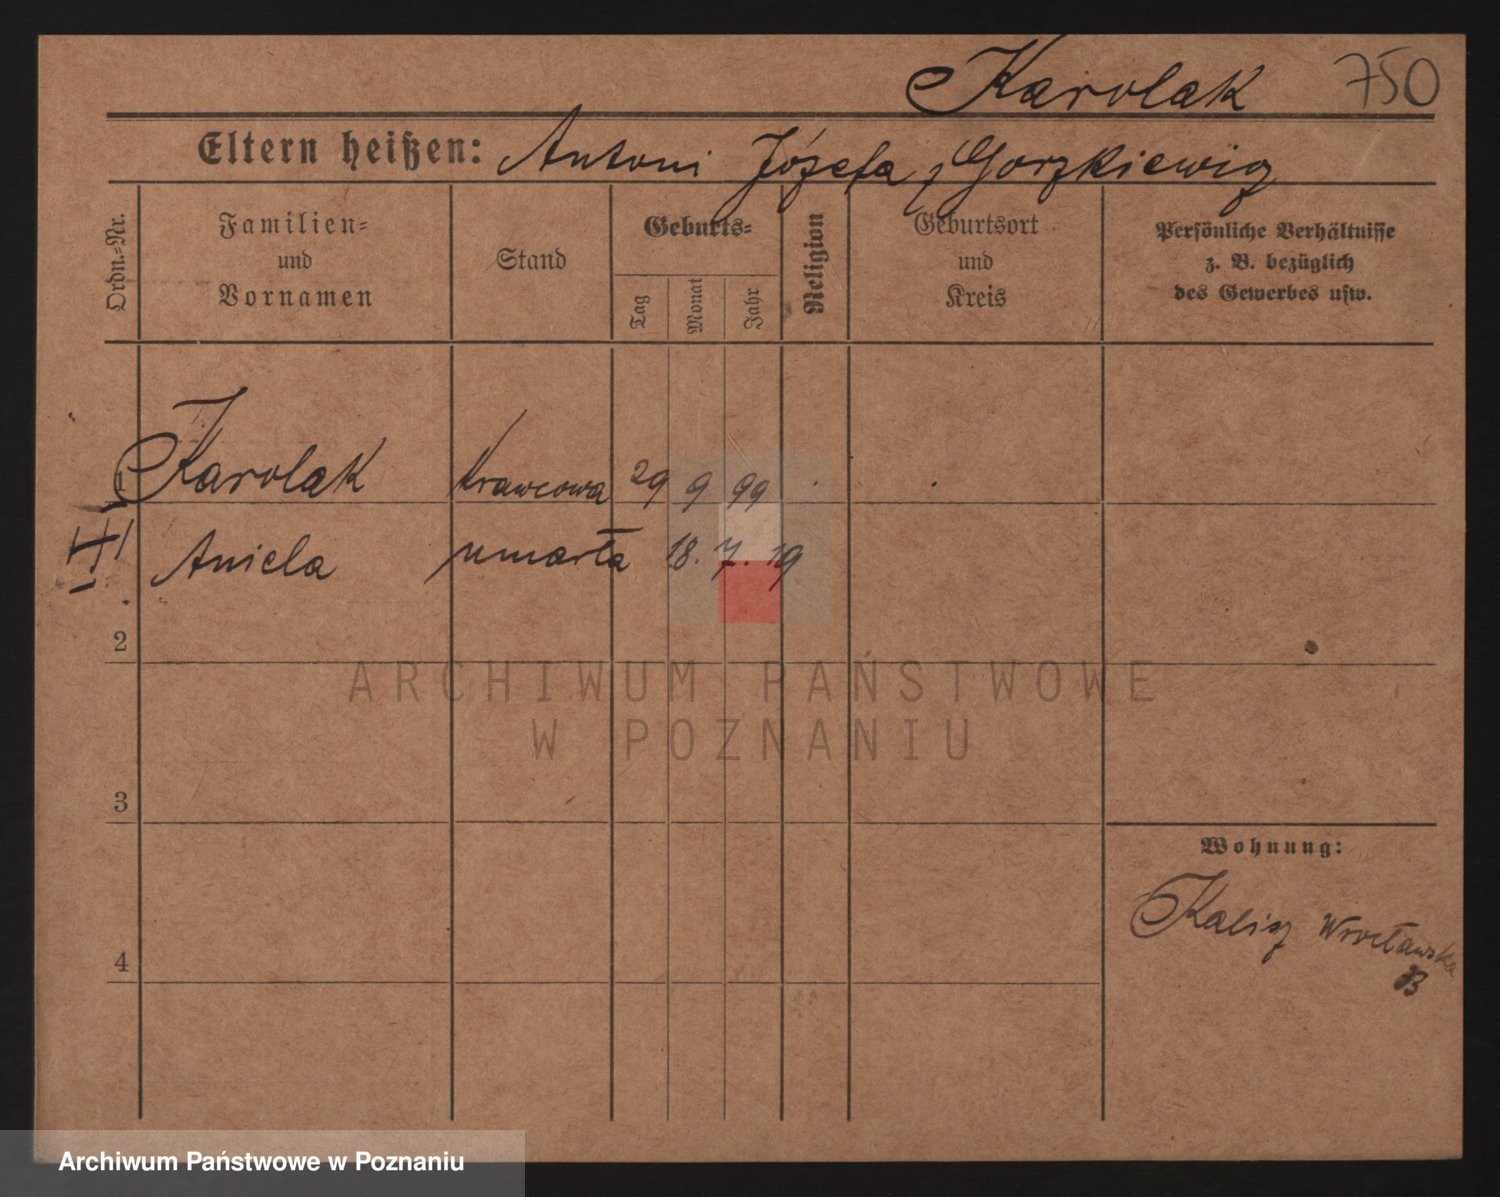 Karolak 750
Eltern heißen: Antoni Józefa z Gorzkiewicz
Ordn.=Nr.
Familien=
und
Vornamen
Stand
Geburts=
Tag
Monat
Jahr
Religion
Geburtsort
und
Kreis
Persönliche Verhältnisse
z. B. bezüglich
des Gewerbes usw.
1 Karolak Krawcowa 29 9 99
Aniela umarła 18. 7. 19
2
3
4
Wohnung:
Kalisz Wrocławska
ARCHIWUM PAŃSTWOWE
W POZNANIU
Archiwum Państwowe w Poznaniu